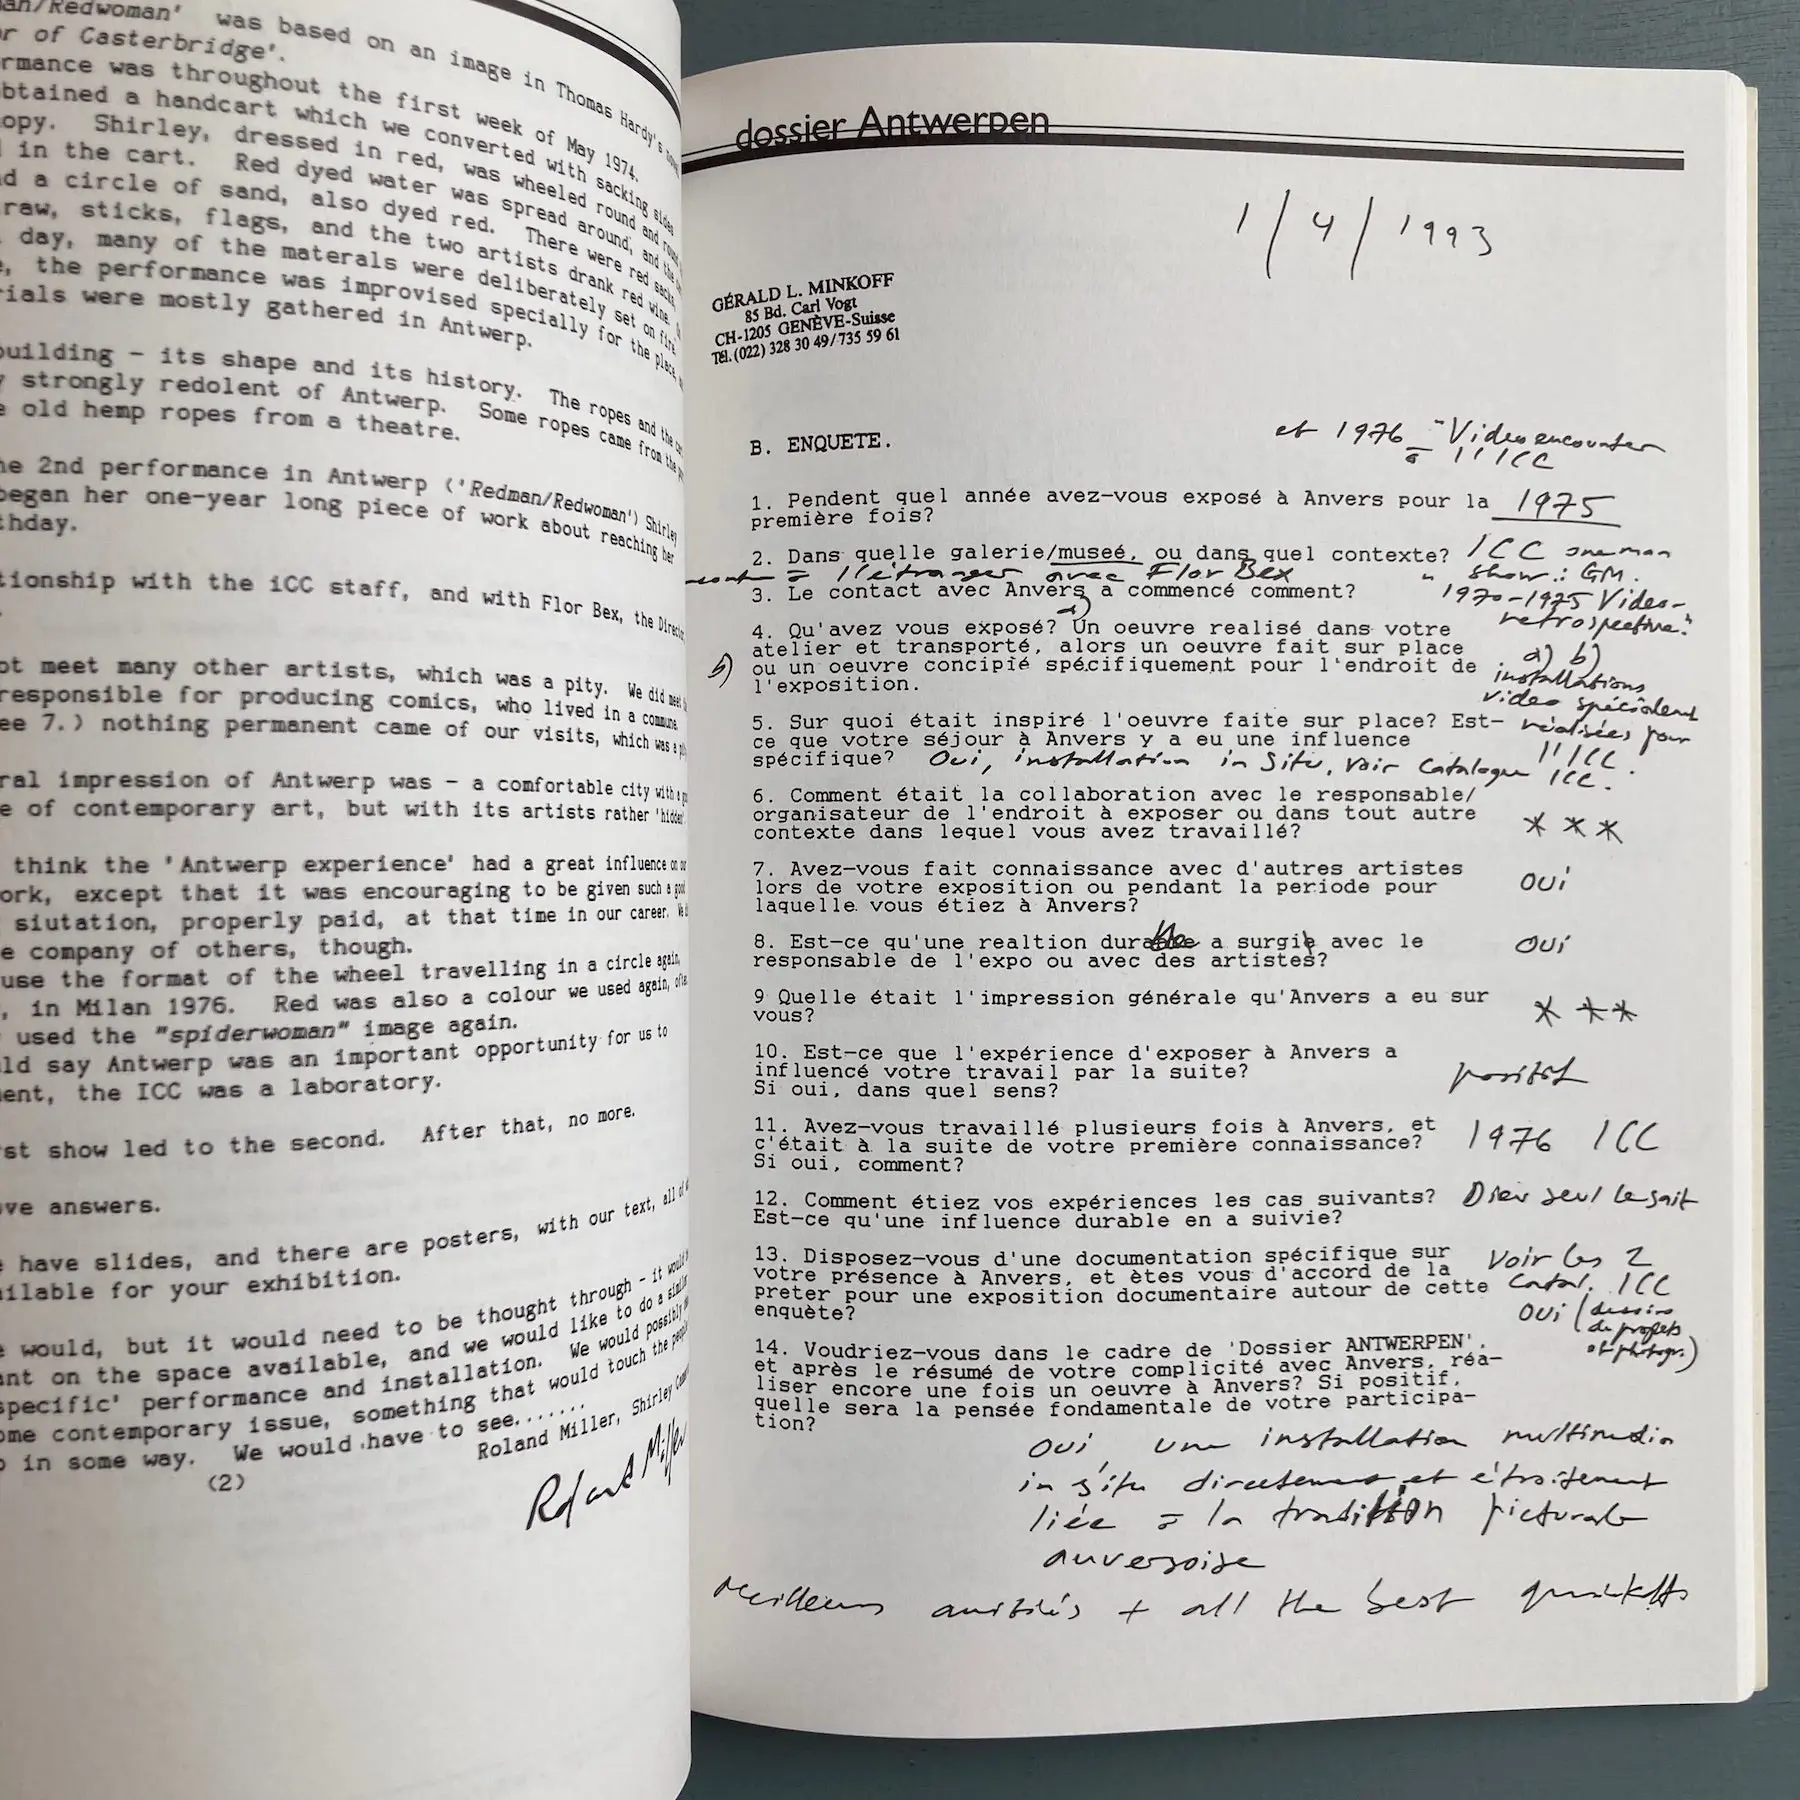 an/Redwoman' was based on an image in Thomas Hardy's novel
r of Casterbridge'.
rmance was throughout the first week of May 1974.
btained a handcart which we converted with sacking sides
opy. Shirley, dressed in red, was wheeled round and round
in the cart. Red dyed water was spread around, and the
d a circle of sand, also dyed red. There were red sacks,
raw, sticks, flags, and the two artists drank red wine.
day, many of the materals were deliberately set on fire.
e, the performance was improvised specially for the place,
rials were mostly gathered in Antwerp.
building - its shape and its history. The ropes and the
y strongly redolent of Antwerp. Some ropes came from the
e old hemp ropes from a theatre.
he 2nd performance in Antwerp ('Redman/Redwoman') Shirley
began her one-year long piece of work about reaching her
thday.
tionship with the iCC staff, and with Flor Bex, the Director
ot meet many other artists, which was a pity. We did meet
responsible for producing comics, who lived in a commune.
ee 7.) nothing permanent came of our visits, which was a
ral impression of Antwerp was - a comfortable city with a
e of contemporary art, but with its artists rather 'hidden'
think the 'Antwerp experience' had a great influence on our
ork, except that it was encouraging to be given such a good
siutation, properly paid, at that time in our career. We
e company of others, though.
use the format of the wheel travelling in a circle again,
, in Milan 1976. Red was also a colour we used again,
used the "spiderwoman" image again.
ld say Antwerp was an important opportunity for us to
ment, the ICC was a laboratory.
rst show led to the second. After that, no more.
ve answers.
e have slides, and there are posters, with our text, all of
ailable for your exhibition.
e would, but it would need to be thought through - it would
nt on the space available, and we would like to do a similar
specific' performance and installation. We would possibly
ome contemporary issue, something that would touch the people
o in some way. We would have to see.......
Roland Miller, Shirley
(2)
Roland Miller
dossier Antwerpen
1/4/1993
GÉRALD L. MINKOFF
85 Bd. Carl Vogt
CH-1205 GENÈVE-Suisse
Tél. (022) 328 30 49/735 59 61
et 1976 "Videoencounter
à l'ICC
B. ENQUETE.
1. Pendent quel année avez-vous exposé à Anvers pour la 1975
première fois?
2. Dans quelle galerie/museé, ou dans quel contexte? ICC one man
show: GM.
à l'étranger avec Flor Bex
3. Le contact avec Anvers a commencé comment? "1970-1975 Video-
retrospective"
a)
4. Qu'avez vous exposé? Un oeuvre realisé dans votre
atelier et transporté, alors un oeuvre fait sur place
b) ou un oeuvre concipié spécifiquement pour l'endroit de
l'exposition.
a) b)
installations
video spécialement
réalisées pour
l'ICC.
5. Sur quoi était inspiré l'oeuvre faite sur place? Est-
ce que votre séjour à Anvers y a eu une influence
spécifique? Oui, installation in situ, voir catalogue ICC.
6. Comment était la collaboration avec le responsable/
organisateur de l'endroit à exposer ou dans tout autre
contexte dans lequel vous avez travaillé? * * *
7. Avez-vous fait connaissance avec d'autres artistes
lors de votre exposition ou pendant la periode pour
laquelle vous étiez à Anvers? oui
8. Est-ce qu'une realtion durable a surgi avec le
responsable de l'expo ou avec des artistes? oui
9 Quelle était l'impression générale qu'Anvers a eu sur
vous? * * *
10. Est-ce que l'expérience d'exposer à Anvers a
influencé votre travail par la suite?
Si oui, dans quel sens? positif
11. Avez-vous travaillé plusieurs fois à Anvers, et
c'était à la suite de votre première connaissance? 1976 ICC
Si oui, comment?
12. Comment étiez vos expériences les cas suivants? Dieu seul le sait
Est-ce qu'une influence durable en a suivie?
13. Disposez-vous d'une documentation spécifique sur
votre présence à Anvers, et ètes vous d'accord de la
preter pour une exposition documentaire autour de cette
enquète?
voir les 2
Catal. ICC
oui (dessins
de projets
et photogr.)
14. Voudriez-vous dans le cadre de 'Dossier ANTWERPEN',
et après le résumé de votre complicité avec Anvers, réa-
liser encore une fois un oeuvre à Anvers? Si positif,
quelle sera la pensée fondamentale de votre participa-
tion?
oui, une installation multimedia
in situ directement et étroitement
liée à la tradition picturale
anversoise
Meilleures amitiés + all the best